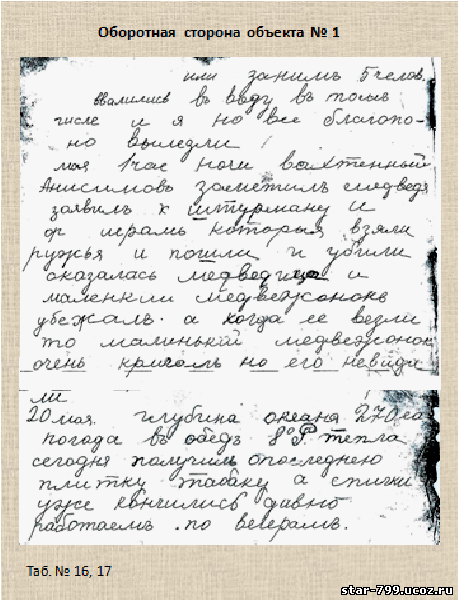 Оборотная сторона объекта № 1
или занимъ 5 челов.
ввалились въ воду въ томъ
числе и я но все благопо-
но вылезли
мая 1 час ночи вахтенный
Анисимовъ заметилъ медведя
заявилъ к штурману и
которыя взяли
ружья и пошли и убили
оказалась медведица и
маленкии медвежонокъ
убежалъ. а когда ее везли
то маленькой медвежонок
очень кричалъ но его невида
ли
20 мая глубина океана 270 саж
погода въ обедъ 8°Р тепла
сегодня получили опоследнею
плитку табаку а спички
уже кончились давно
работаемъ по вечерамъ.
Таб. № 16, 17
star-799.ucoz.ru